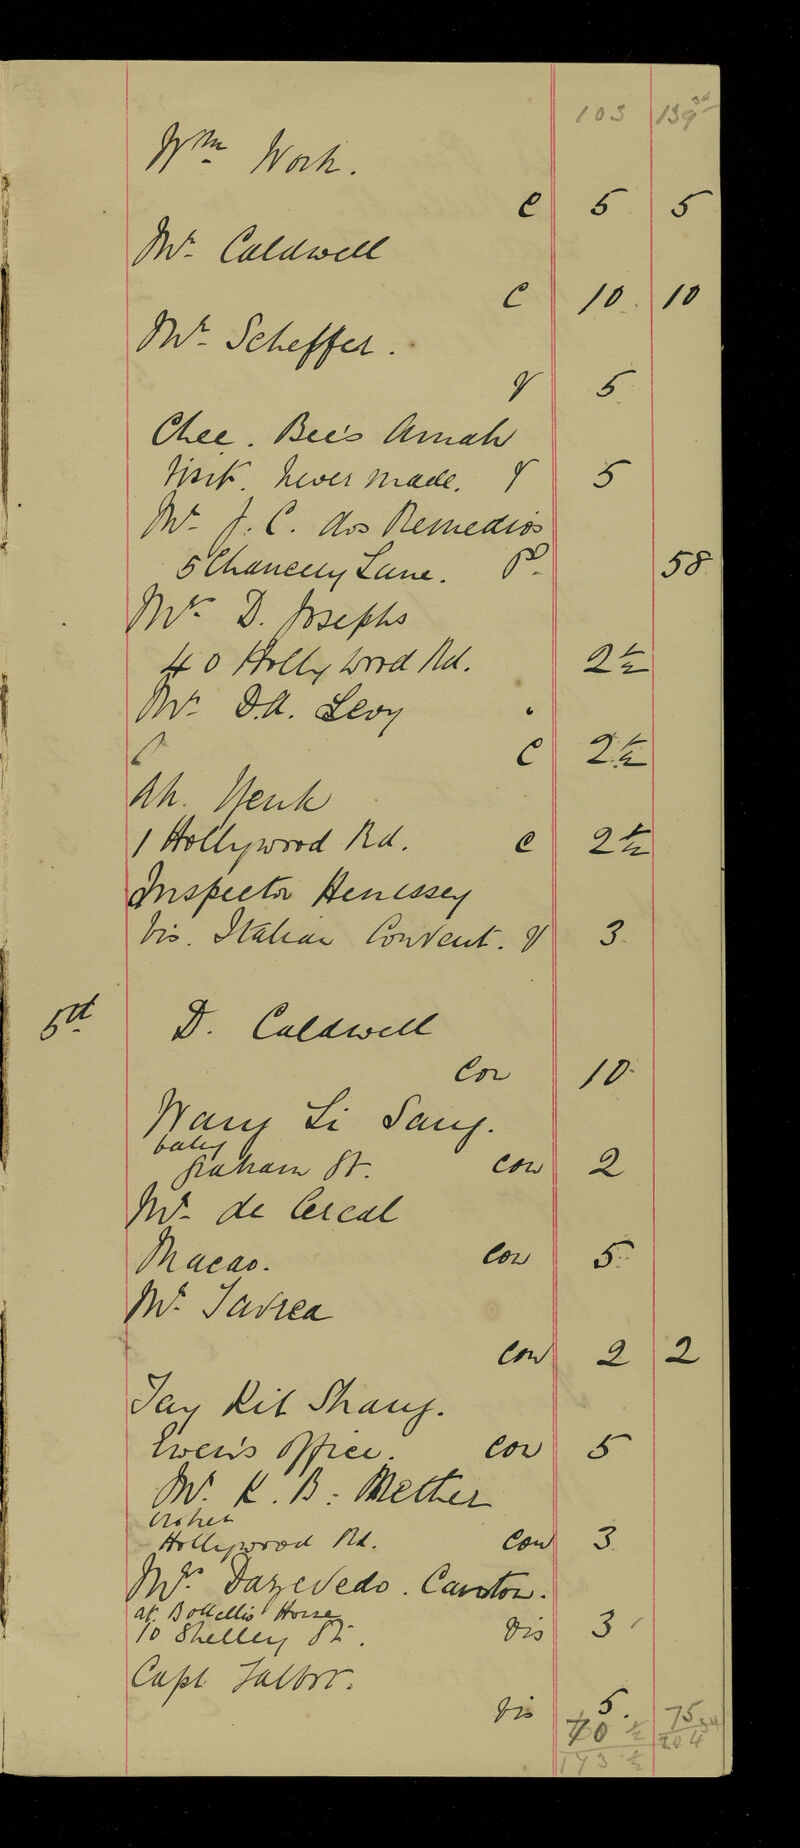 103 139
Wm Work.
C 5 5
Mr Caldwell
C 10 10
Mr Scheffer.
V 5
Chee. Bee's Amah
Visit. never made. V 5
Mr J. C. dos Remedios
5 Chancery Lane. Pd 58
Mr D. Josephs
40 Hollywood Rd. 2 1/2
Mr D.A. Levy
C 2 1/2
Ah. Yenk
1 Hollywood Rd. C 2 1/2
Inspector Henessey
Vis. Italian Convent. V 3
5th D. Caldwell
Con 10
Wang Li Sang.
baby
Graham St. Con 2
Mr de Cercal
Macao. Con 5
Mr Tavrea
Con 2 2
Tay Kit Shang.
Ewen's Office. Con 5
Mr. K. B. Mether
broker
Hollywood Rd. Con 3
Mrs Dazevedo. Canton.
at Botellio House
10 Shelley St. Vis 3
Capt Talbot.
Vis 5.
70 1/2 75
173 1/2 204